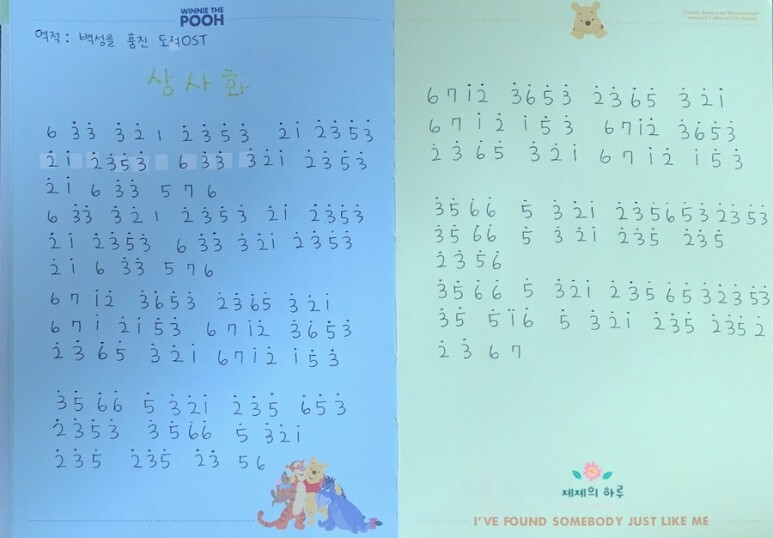 WINNIE THE
POOH
역적 : 백성을 훔친 도적OST
상사화
6 3̇3̇ 3̇2̇1 2̇3̇5̇3̇ 2̇i 2̇3̇5̇3̇
2̇i 2̇3̇5̇3̇ 6 3̇3̇ 3̇2̇i 2̇3̇5̇3̇
2̇i 6 3̇3̇ 5 7 6
6 3̇3̇ 3̇2̇1 2̇3̇5̇3̇ 2̇i 2̇3̇5̇3̇
2̇i 2̇3̇5̇3̇ 6 3̇3̇ 3̇2̇i 2̇3̇5̇3̇
2̇i 6 3̇3̇ 5 7 6
6 7 i2̇ 3̇6̇5̇3̇ 2̇3̇6̇5̇ 3̇2̇i
6 7 i 2̇i5̇3̇ 6 7 i2̇ 3̇6̇5̇3̇
2̇3̇6̇5̇ 3̇2̇i 6 7 i2̇ i5̇3̇
3̇5̇6̇6̇ 5̇ 3̇2̇i 2̇3̇5̇ 6̇5̇3̇
2̇3̇5̇3̇ 3̇5̇6̇6̇ 5̇ 3̇2̇i
2̇3̇5̇ 2̇3̇5̇ 2̇3̇ 5 6
6 7 i2̇ 3̇6̇5̇3̇ 2̇3̇6̇5̇ 3̇2̇i
6 7 i2̇ i5̇3̇ 6 7 i2̇ 3̇6̇5̇3̇
2̇3̇6̇5̇ 3̇2̇i 6 7 i2̇ i5̇3̇
3̇5̇6̇6̇ 5̇ 3̇2̇i 2̇3̇5̇6̇5̇3̇2̇3̇5̇3̇
3̇5̇6̇6̇ 5̇ 3̇2̇i 2̇3̇5̇ 2̇3̇5̇
2̇3̇5̇6̇
3̇5̇6̇6̇ 5̇ 3̇2̇i 2̇3̇5̇6̇5̇3̇2̇3̇5̇3̇
3̇5̇ 5̇ï6̇ 5̇ 3̇2̇i 2̇3̇5̇ 2̇3̇5̇2̇
2̇3̇ 6 7
제제의 하루
I'VE FOUND SOMEBODY JUST LIKE ME